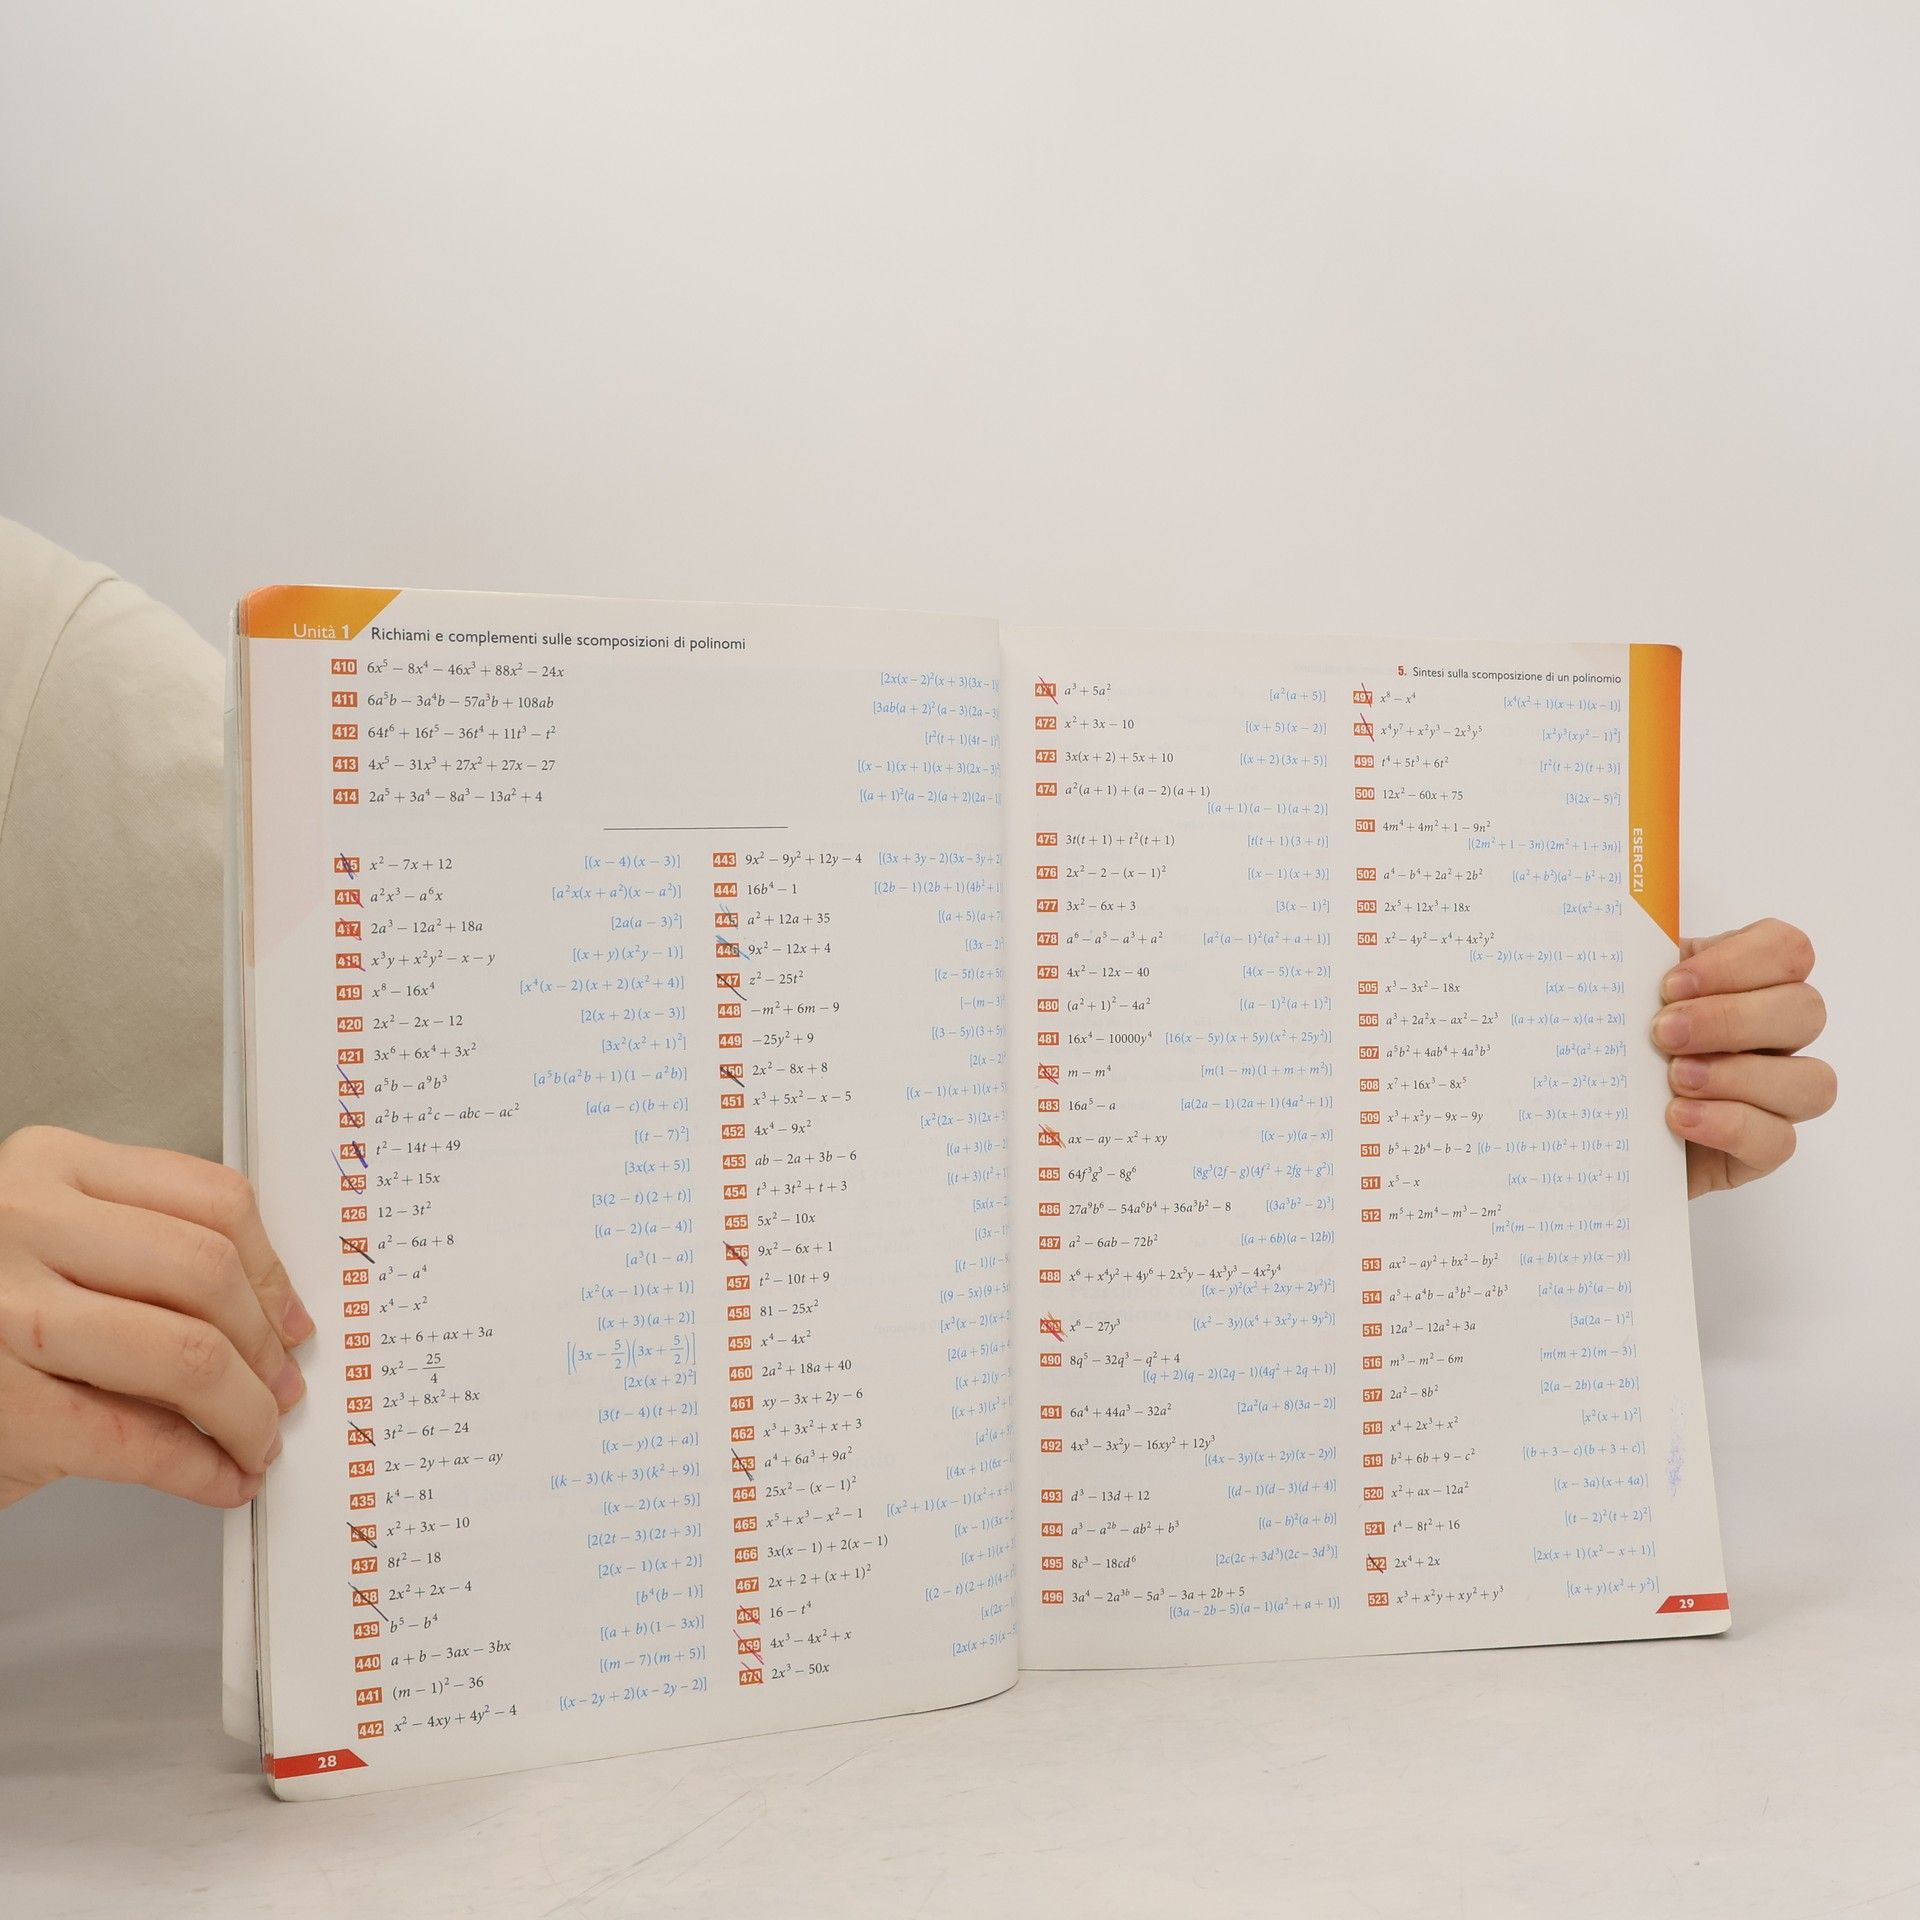 Unità 1 Richiami e complementi sulle scomposizioni di polinomi
410 6x⁵ − 8x⁴ − 46x³ + 88x² − 24x [2x(x − 2)²(x + 3)(3x − 1)]
411 6a⁵b − 3a⁴b − 57a³b + 108ab [3ab(a + 2)²(a − 3)(2a − 3)
412 64t⁶ + 16t⁵ − 36t⁴ + 11t³ − t² [t²(t + 1)(4t − 1)³
413 4x⁵ − 31x³ + 27x² + 27x − 27 [(x − 1)(x + 1)(x + 3)(2x − 3)²
414 2a⁵ + 3a⁴ − 8a³ − 13a² + 4 [(a + 1)²(a − 2)(a + 2)(2a − 1)
415 x² − 7x + 12 [(x − 4)(x − 3)]
416 a²x³ − a⁶x [a²x(x + a²)(x − a²)]
417 2a³ − 12a² + 18a [2a(a − 3)²]
418 x³y + x²y² − x − y [(x + y)(x²y − 1)]
419 x⁸ − 16x⁴ [x⁴(x − 2)(x + 2)(x² + 4)]
420 2x² − 2x − 12 [2(x + 2)(x − 3)]
421 3x⁶ + 6x⁴ + 3x² [3x²(x² + 1)²]
422 a⁵b − a⁹b³ [a⁵b(a²b + 1)(1 − a²b)]
423 a²b + a²c − abc − ac² [a(a − c)(b + c)]
424 t² − 14t + 49 [(t − 7)²]
425 3x² + 15x [3x(x + 5)]
426 12 − 3t² [3(2 − t)(2 + t)]
427 a² − 6a + 8 [(a − 2)(a − 4)]
428 a³ − a⁴ [a³(1 − a)]
429 x⁴ − x² [x²(x − 1)(x + 1)]
430 2x + 6 + ax + 3a [(x + 3)(a + 2)]
431 9x² − 25/4 [(3x − 5/2)(3x + 5/2)]
432 2x³ + 8x² + 8x [2x(x + 2)²]
433 3t² − 6t − 24 [3(t − 4)(t + 2)]
434 2x − 2y + ax − ay [(x − y)(2 + a)]
435 k⁴ − 81 [(k − 3)(k + 3)(k² + 9)]
436 x² + 3x − 10 [(x − 2)(x + 5)]
437 8t² − 18 [2(2t − 3)(2t + 3)]
438 2x² + 2x − 4 [2(x − 1)(x + 2)]
439 b⁵ − b⁴ [b⁴(b − 1)]
440 a + b − 3ax − 3bx [(a + b)(1 − 3x)]
441 (m − 1)² − 36 [(m − 7)(m + 5)]
442 x² − 4xy + 4y² − 4 [(x − 2y + 2)(x − 2y − 2)]
28
443 9x² − 9y² + 12y − 4 [(3x + 3y − 2)(3x − 3y + 2)
444 16b⁴ − 1 [(2b − 1)(2b + 1)(4b² + 1)
445 a² + 12a + 35 [(a + 5)(a + 7
446 9x² − 12x + 4 [(3x − 2)²
447 z² − 25t² [(z − 5t)(z + 5t
448 −m² + 6m − 9 [−(m − 3)²
449 −25y² + 9 [(3 − 5y)(3 + 5y
450 2x² − 8x + 8 [2(x − 2)²
451 x³ + 5x² − x − 5 [(x − 1)(x + 1)(x + 5
452 4x⁴ − 9x² [x²(2x − 3)(2x + 3
453 ab − 2a + 3b − 6 [(a + 3)(b − 2
454 t³ + 3t² + t + 3 [(t + 3)(t² + 1
455 5x² − 10x [5x(x − 2
456 9x² − 6x + 1 [(3x − 1)
457 t² − 10t + 9 [(t − 1)(t − 9
458 81 − 25x² [(9 − 5x)(9 + 5x
459 x⁴ − 4x² [x²(x − 2)(x + 2
460 2a² + 18a + 40 [2(a + 5)(a + 4
461 xy − 3x + 2y − 6 [(x + 2)(y − 3
462 x³ + 3x² + x + 3 [(x + 3)(x² + 1
463 a⁴ + 6a³ + 9a² [a²(a + 3)²
464 25x² − (x − 1)² [(4x + 1)(6x − 1
465 x⁵ + x³ − x² − 1 [(x² + 1)(x − 1)(x² + x + 1
466 3x(x − 1) + 2(x − 1) [(x − 1)(3x + 2
467 2x + 2 + (x + 1)² [(x + 1)(x + 3
468 16 − t⁴ [(2 − t)(2 + t)(4 + t²
469 4x³ − 4x² + x [x(2x − 1
470 2x³ − 50x [2x(x + 5)(x − 5
5. Sintesi sulla scomposizione di un polinomio
471 a³ + 5a² [a²(a + 5)]
472 x² + 3x − 10 [(x + 5)(x − 2)]
473 3x(x + 2) + 5x + 10 [(x + 2)(3x + 5)]
474 a²(a + 1) + (a − 2)(a + 1)
[(a + 1)(a − 1)(a + 2)]
475 3t(t + 1) + t²(t + 1) [t(t + 1)(3 + t)]
476 2x² − 2 − (x − 1)² [(x − 1)(x + 3)]
477 3x² − 6x + 3 [3(x − 1)²]
478 a⁶ − a⁵ − a³ + a² [a²(a − 1)²(a² + a + 1)]
479 4x² − 12x − 40 [4(x − 5)(x + 2)]
480 (a² + 1)² − 4a² [(a − 1)²(a + 1)²]
481 16x⁴ − 10000y⁴ [16(x − 5y)(x + 5y)(x² + 25y²)]
482 m − m⁴ [m(1 − m)(1 + m + m²)]
483 16a⁵ − a [a(2a − 1)(2a + 1)(4a² + 1)]
484 ax − ay − x² + xy [(x − y)(a − x)]
485 64f³g³ − 8g⁶ [8g³(2f − g)(4f² + 2fg + g²)]
486 27a⁹b⁶ − 54a⁶b⁴ + 36a³b² − 8 [(3a³b² − 2)³]
487 a² − 6ab − 72b² [(a + 6b)(a − 12b)]
488 x⁶ + x⁴y² + 4y⁶ + 2x⁵y − 4x³y³ − 4x²y⁴
[(x − y)²(x² + 2xy + 2y²)²]
489 x⁶ − 27y³ [(x² − 3y)(x⁴ + 3x²y + 9y²)]
490 8q⁵ − 32q³ − q² + 4
[(q + 2)(q − 2)(2q − 1)(4q² + 2q + 1)]
491 6a⁴ + 44a³ − 32a² [2a²(a + 8)(3a − 2)]
492 4x³ − 3x²y − 16xy² + 12y³
[(4x − 3y)(x + 2y)(x − 2y)]
493 d³ − 13d + 12 [(d − 1)(d − 3)(d + 4)]
494 a³ − a²ᵇ − ab² + b³ [(a − b)²(a + b)]
495 8c³ − 18cd⁶ [2c(2c + 3d³)(2c − 3d³)]
496 3a⁴ − 2a³ᵇ − 5a³ − 3a + 2b + 5
[(3a − 2b − 5)(a − 1)(a² + a + 1)]
497 x⁸ − x⁴ [x⁴(x² + 1)(x + 1)(x − 1)]
498 x⁴y⁷ + x²y³ − 2x³y⁵ [x²y³(xy² − 1)²]
499 t⁴ + 5t³ + 6t² [t²(t + 2)(t + 3)]
500 12x² − 60x + 75 [3(2x − 5)²]
501 4m⁴ + 4m² + 1 − 9n²
[(2m² + 1 − 3n)(2m² + 1 + 3n)]
502 a⁴ − b⁴ + 2a² + 2b² [(a² + b²)(a² − b² + 2)]
503 2x⁵ + 12x³ + 18x [2x(x² + 3)²]
504 x² − 4y² − x⁴ + 4x²y²
[(x − 2y)(x + 2y)(1 − x)(1 + x)]
505 x³ − 3x² − 18x [x(x − 6)(x + 3)]
506 a³ + 2a²x − ax² − 2x³ [(a + x)(a − x)(a + 2x)]
507 a⁵b² + 4ab⁴ + 4a³b³ [ab²(a² + 2b)²]
508 x⁷ + 16x³ − 8x⁵ [x³(x − 2)²(x + 2)²]
509 x³ + x²y − 9x − 9y [(x − 3)(x + 3)(x + y)]
510 b⁵ + 2b⁴ − b − 2 [(b − 1)(b + 1)(b² + 1)(b + 2)]
511 x⁵ − x [x(x − 1)(x + 1)(x² + 1)]
512 m⁵ + 2m⁴ − m³ − 2m²
[m²(m − 1)(m + 1)(m + 2)]
513 ax² − ay² + bx² − by² [(a + b)(x + y)(x − y)]
514 a⁵ + a⁴b − a³b² − a²b³ [a²(a + b)²(a − b)]
515 12a³ − 12a² + 3a [3a(2a − 1)²]
516 m³ − m² − 6m [m(m + 2)(m − 3)]
517 2a² − 8b² [2(a − 2b)(a + 2b)]
518 x⁴ + 2x³ + x² [x²(x + 1)²]
519 b² + 6b + 9 − c² [(b + 3 − c)(b + 3 + c)]
520 x² + ax − 12a² [(x − 3a)(x + 4a)]
521 t⁴ − 8t² + 16 [(t − 2)²(t + 2)²]
522 2x⁴ + 2x [2x(x + 1)(x² − x + 1)]
523 x³ + x²y + xy² + y³ [(x + y)(x² + y²)]
ESERCIZI
29